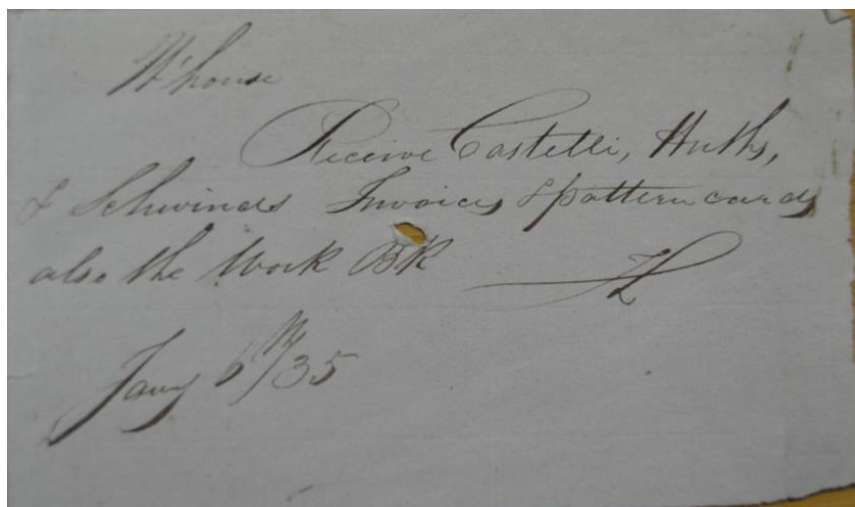 W'house
Receive Castelli, Huths,
& Schwinds Invoices & pattern cards
also the Work BK
Jany 6th/35